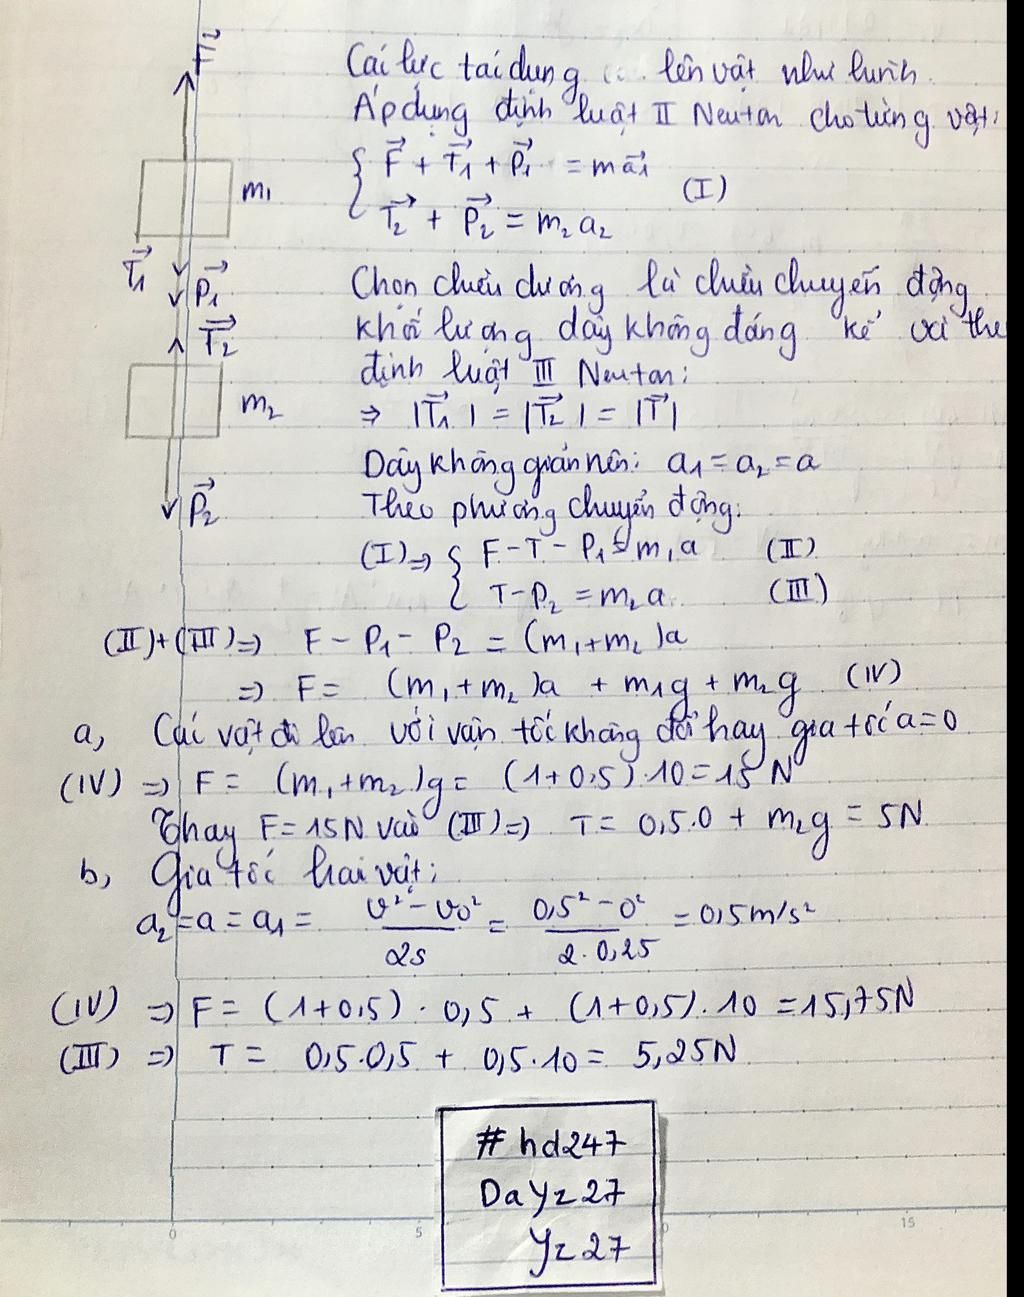 F⃗
Các lực tác dụng lên vật như hình.
Áp dụng định luật II Neuton cho từng vật:
F⃗ + T⃗1 + P⃗1 = m a⃗1
m1
(I)
T⃗2 + P⃗2 = m2 a2
T⃗1
P⃗1
Chọn chiều dương là chiều chuyển động
T⃗2
khối lượng dây không đáng kể và the
định luật III Neuton:
m2
⇒ |T⃗1| = |T⃗2| = |T⃗|
Dây không giãn nên: a1 = a2 = a
P⃗2
Theo phương chuyển động:
(I) ⇒ { F - T - P1 = m1a (II)
T - P2 = m2a (III)
(II)+(III) ⇒ F - P1 - P2 = (m1+m2)a
⇒ F = (m1+m2)a + m1g + m2g (IV)
a, Các vật đi lên với vận tốc không đổi hay gia tốc a=0
(IV) ⇒ F = (m1+m2)g = (1+0,5)·10 = 15N
Thay F = 15N vào (III) ⇒ T = 0,5.0 + m2g = 5N
b, Gia tốc hai vật:
a2 = a = a1 = (v² - v0²)/2s = (0,5² - 0²)/(2·0,25) = 0,5m/s²
(IV) ⇒ F = (1+0,5)·0,5 + (1+0,5).10 = 15,75N
(III) ⇒ T = 0,5.0,5 + 0,5·10 = 5,25N
# hd247
DaYz27
Yz27
0 5 15